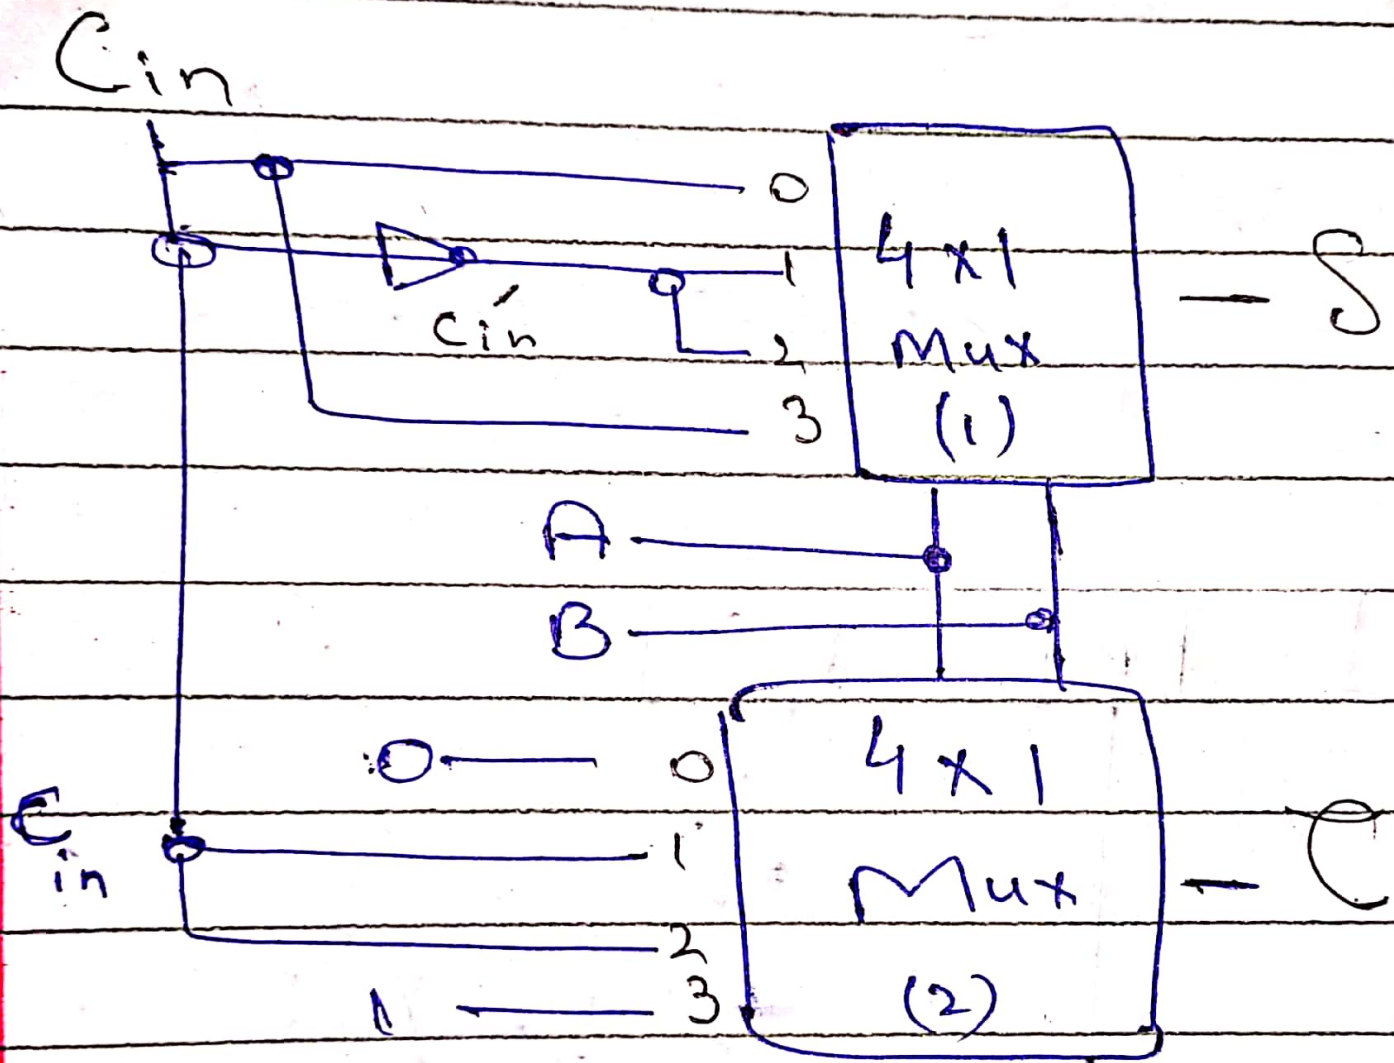 Cin
0
1
Cin'
2
3
4x1
Mux
(1)
S
A
B
0
0
Cin
1
2
1
3
4x1
Mux
(2)
C